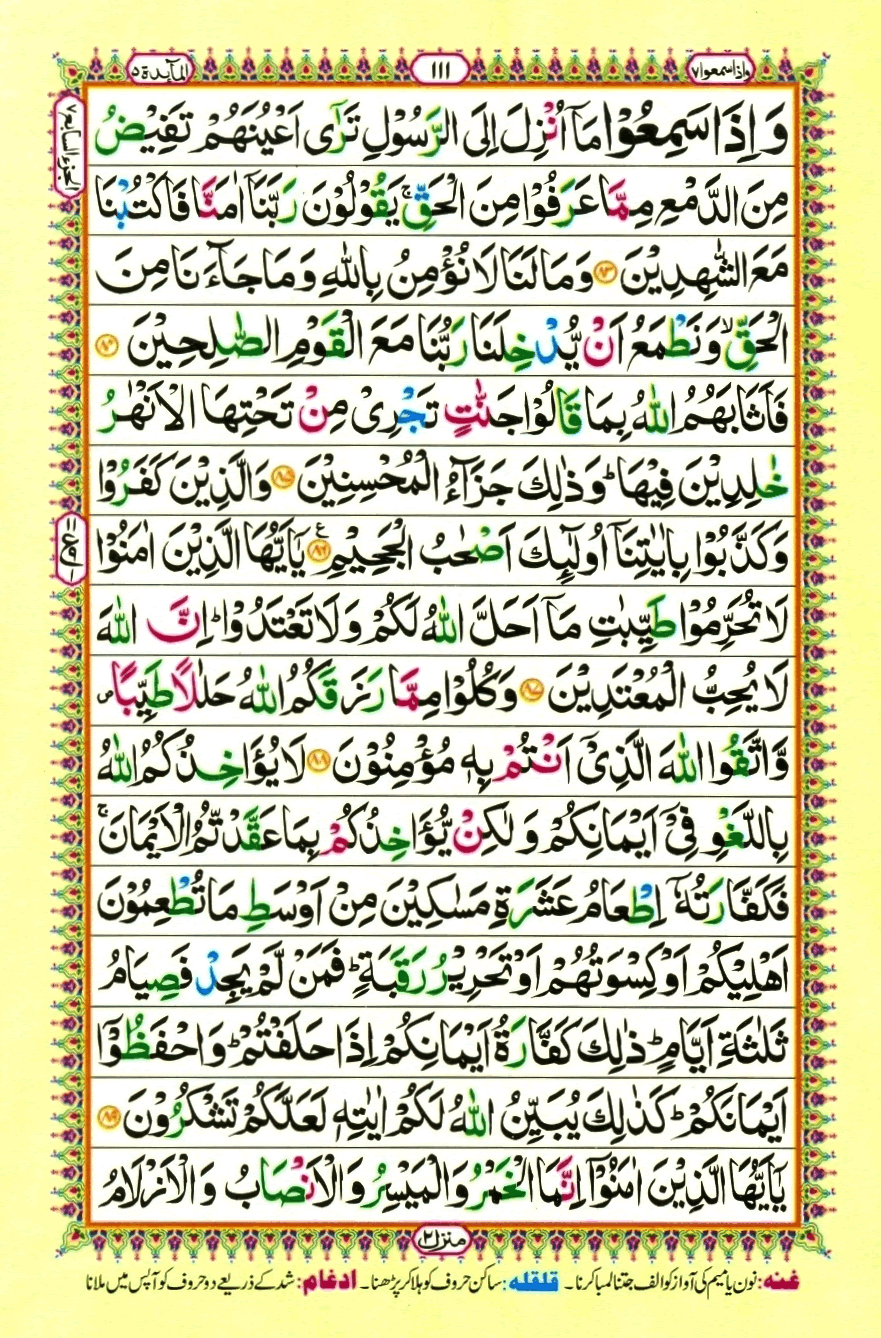 واذاسمعوا ٧
١١١
المآىٕدة ٥
الجزء السابع ٧
وَ اِذَا سَمِعُوْا مَاۤ اُنْزِلَ اِلَى الرَّسُوْلِ تَرٰۤى اَعْیُنَهُمْ تَفِیْضُ
مِنَ الدَّمْعِ مِمَّا عَرَفُوْا مِنَ الْحَقِّۚ یَقُوْلُوْنَ رَبَّنَاۤ اٰمَنَّا فَاكْتُبْنَا
مَعَ الشّٰهِدِیْنَ ﴿۸۳﴾ وَ مَا لَنَا لَا نُؤْمِنُ بِاللّٰهِ وَ مَا جَآءَنَا مِنَ
الْحَقِّۙ وَ نَطْمَعُ اَنْ یُّدْخِلَنَا رَبُّنَا مَعَ الْقَوْمِ الصّٰلِحِیْنَ ﴿۸۴﴾
فَاَثَابَهُمُ اللّٰهُ بِمَا قَالُوْا جَنّٰتٍ تَجْرِیْ مِنْ تَحْتِهَا الْاَنْهٰرُ
خٰلِدِیْنَ فِیْهَاؕ وَ ذٰلِكَ جَزَآءُ الْمُحْسِنِیْنَ ﴿۸۵﴾ وَ الَّذِیْنَ كَفَرُوْا
وَ كَذَّبُوْا بِاٰیٰتِنَاۤ اُولٰٓىِٕكَ اَصْحٰبُ الْجَحِیْمِ ﴿۸۶﴾ ع یٰۤاَیُّهَا الَّذِیْنَ اٰمَنُوْا
لَا تُحَرِّمُوْا طَیِّبٰتِ مَاۤ اَحَلَّ اللّٰهُ لَكُمْ وَ لَا تَعْتَدُوْاؕ اِنَّ اللّٰهَ
لَا یُحِبُّ الْمُعْتَدِیْنَ ﴿۸۷﴾ وَ كُلُوْا مِمَّا رَزَقَكُمُ اللّٰهُ حَلٰلًا طَیِّبًا۪
وَّ اتَّقُوا اللّٰهَ الَّذِیْۤ اَنْتُمْ بِهٖ مُؤْمِنُوْنَ ﴿۸۸﴾ لَا یُؤَاخِذُكُمُ اللّٰهُ
بِاللَّغْوِ فِیْۤ اَیْمَانِكُمْ وَ لٰكِنْ یُّؤَاخِذُكُمْ بِمَا عَقَّدْتُّمُ الْاَیْمَانَۚ
فَكَفَّارَتُهٗۤ اِطْعَامُ عَشَرَةِ مَسٰكِیْنَ مِنْ اَوْسَطِ مَا تُطْعِمُوْنَ
اَهْلِیْكُمْ اَوْ كِسْوَتُهُمْ اَوْ تَحْرِیْرُ رَقَبَةٍؕ فَمَنْ لَّمْ یَجِدْ فَصِیَامُ
ثَلٰثَةِ اَیَّامٍؕ ذٰلِكَ كَفَّارَةُ اَیْمَانِكُمْ اِذَا حَلَفْتُمْؕ وَ احْفَظُوْۤا
اَیْمَانَكُمْؕ كَذٰلِكَ یُبَیِّنُ اللّٰهُ لَكُمْ اٰیٰتِهٖ لَعَلَّكُمْ تَشْكُرُوْنَ ﴿۸۹﴾
یٰۤاَیُّهَا الَّذِیْنَ اٰمَنُوْۤا اِنَّمَا الْخَمْرُ وَ الْمَیْسِرُ وَ الْاَنْصَابُ وَ الْاَزْلَامُ
منزل ۲
غنه: نون یا میم کی آواز کو الف جتنا لمبا کرنا۔ قلقله: ساکن حروف کو ہلا کر پڑھنا۔ ادغام: شد کے ذریعے دو حروف کو آپس میں ملانا